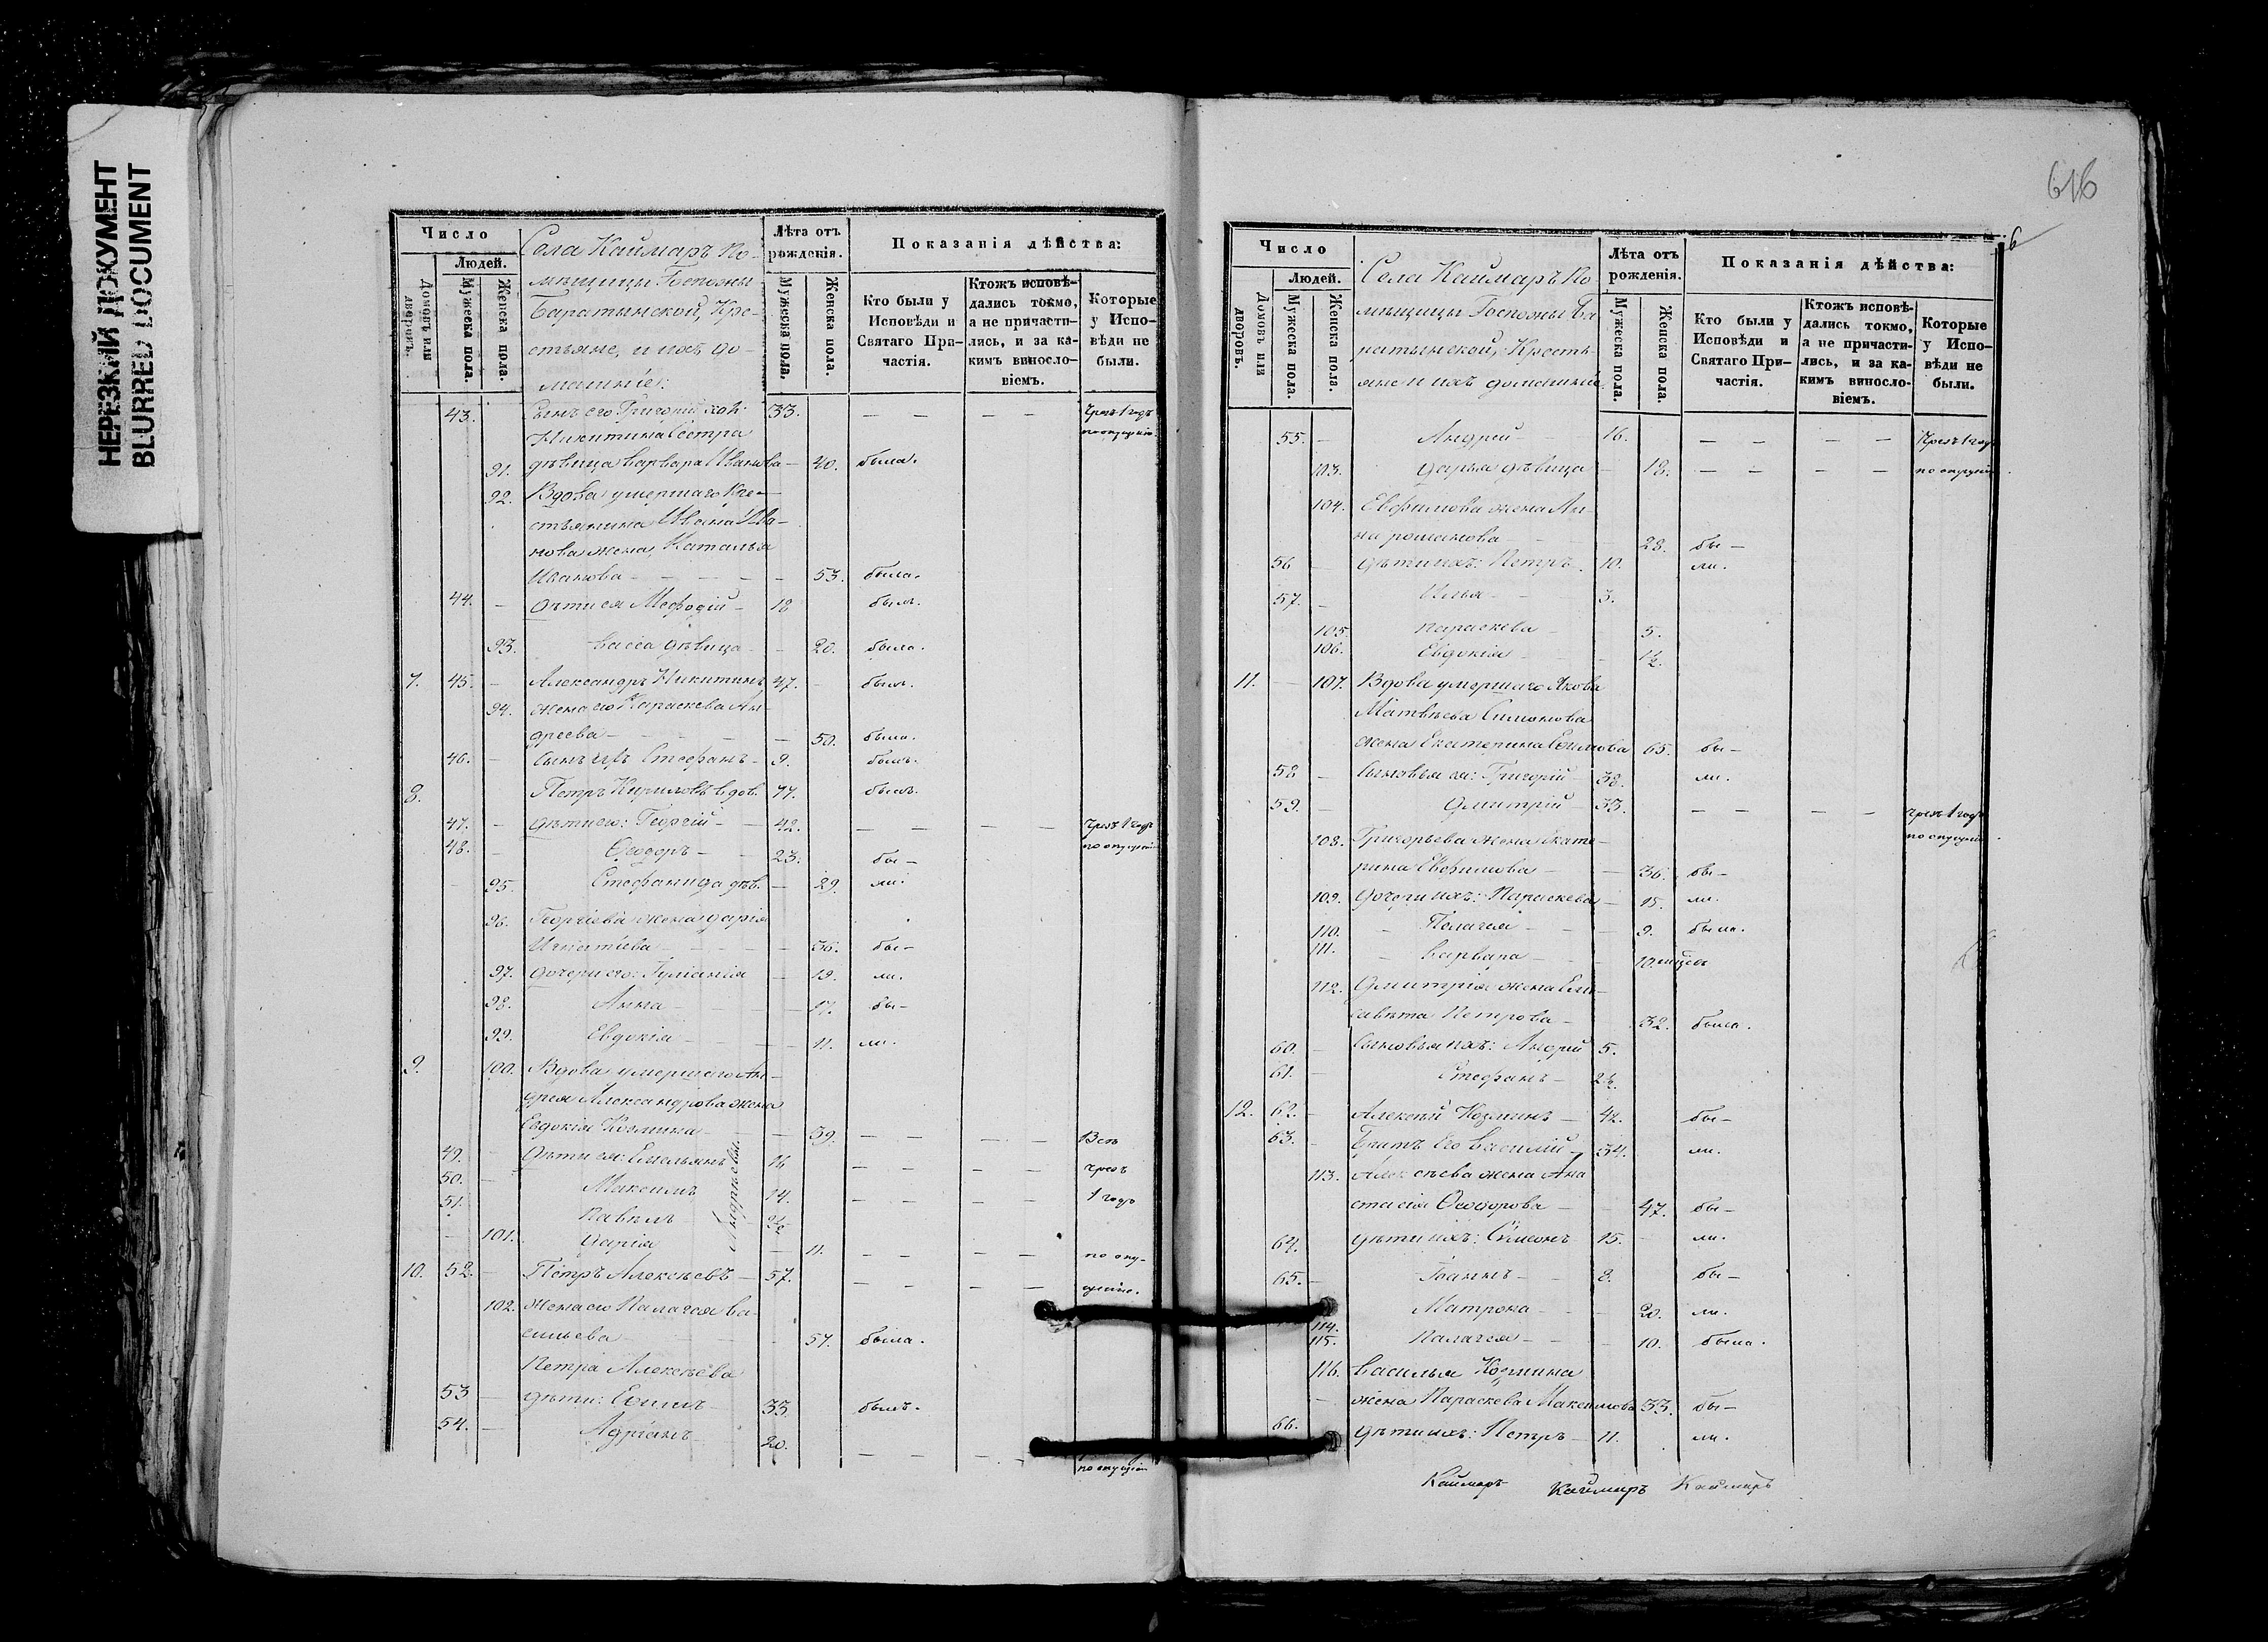 НЕРЕЗКИЙ ДОКУМЕНТ
BLURRED DOCUMENT
Число
Людей.
Домовъ или дворовъ.
Мужеска пола.
Женска пола.
Села Каймаръ По-
мѣщицы Госпожи
Баратынской, Кре-
стьяне, и ихъ до-
машніе:
Лѣта отъ рожденія.
Мужеска пола.
Женска пола.
Показанія дѣйства:
Кто были у Исповѣди и Святаго При-частія.
Ктожъ исповѣ-дались токмо, а не причасти-лись, и за ка-кимъ винослo-віемъ.
Которые у Испо-вѣди не были.
43. Сынъ его Григорій хол: 33. — — — — Чрезъ 1 годъ
Никитина Сестра по опущенію
91. дѣвица Варвара Иванова — 40. была.
92. Вдова умершаго Кре-
стьянина Ивана Ива-
нова жена, Наталья
Иванова — — — — 53. была.
44. — Дѣти ея Меѳодій — 18 былъ.
93. Васса дѣвица — — 20. была.
7. 45. — Александръ Никитинъ 47. — былъ.
94. Жена его Параскева Ан-
дреева — — — — 50. была.
46. — Сынъ ихъ Стефанъ — 9. былъ.
8. Петръ Кириловъ вдов. 77. былъ.
47. — Дѣти его: Георгій — 42. — — — — Чрезъ 1 годъ
48. — Ѳеодоръ — 23. бы — по опущенію
95. Стефанида дѣв. — 29. ли.
96. Георгіева жена Дарія
Игнатіева — — — 36. бы —
97. Дочери его: Іуліанія — 19. ли.
98. Анна — — 17. бы —
99. Евдокія — — 11. ли.
9. — 100. Вдова умершаго Ан-
дрея Александрова жена
Евдокія Козмина — — 39. — — — — Всѣ
49. — Дѣти ея: Емельянъ 16 — — — — чрезъ
50. — Максимъ 14. — — — — 1 годъ
51. Павелъ
Андреевы.
101. Дарія — 11. — — — — по опу-
10. 52. — Петръ Алексѣевъ — 57. — — — — щенію.
102. Жена его Палагея Ва-
сильева 57. была.
Петра Алексѣева
53 — дѣти: Ефимъ — 33. былъ.
54. — Адріанъ — 20. — — — по опущенію
616
6
Число
Людей.
Домовъ или дворовъ.
Мужеска пола.
Женска пола.
Села Каймаръ По
мѣщицы Госпожи Ба
ратынской, Кресть-
яне и ихъ домашніе
Лѣта отъ рожденія.
Мужеска пола.
Женска пола.
Показанія дѣйства:
Кто были у Исповѣди и Святаго При-частія.
Ктожъ исповѣ-дались токмо, а не причасти-лись, и за ка-кимъ винослo-віемъ.
Которые у Испо-вѣди не были.
55. — Андрей — 16. — — — — Чрезъ 1 годъ
103. Дарья дѣвица — 18. — — — — по опущенію
104. Евфимова жена Ан-
на Романова — — 28. бы —
56 — Дѣти ихъ: Петръ 10. ли.
57. — Илья — 3.
105. Параскева — 5.
106. Евдокія — — 1½.
11. — 107. Вдова умершаго Якова
Матвѣева Симонова
жена Екатерина 65. бы —
58 — Сыновья ея: Григорій 38. ли.
59. — Дмитрій — 33. — — — — чрезъ 1 годъ
108. Григорьева жена Екате- по опущенію
рина Евфимова — — 36. бы —
109. Дочери ихъ: Параскева — 15. ли.
110. — Пелагея — — 9. была.
111. — Варвара — — 10. мѣсяцъ
112. Дмитрія жена Ели-
савета Петрова — 32. была.
60. — Сыновья ихъ: Андрей 5.
61. — Стефанъ — 2½.
12. 62. — Алексѣй Козминъ — 42. бы —
63. — Братъ Его Василій — 34. ли.
113. Алексѣева жена Ана
стасія Ѳеодорова — 47. бы —
64. Дѣти ихъ: Сѵмеонъ 15. — ли.
65. — Іоаннъ — 8. бы —
114. Матрона — — 20. ли.
115. Палагея — — 10. была.
116. Василья Козмина
— жена Параскева Максимова 33. бы —
66. Дѣти ихъ: Петръ — 11. ли.
Каймаръ Каймаръ Каймаръ